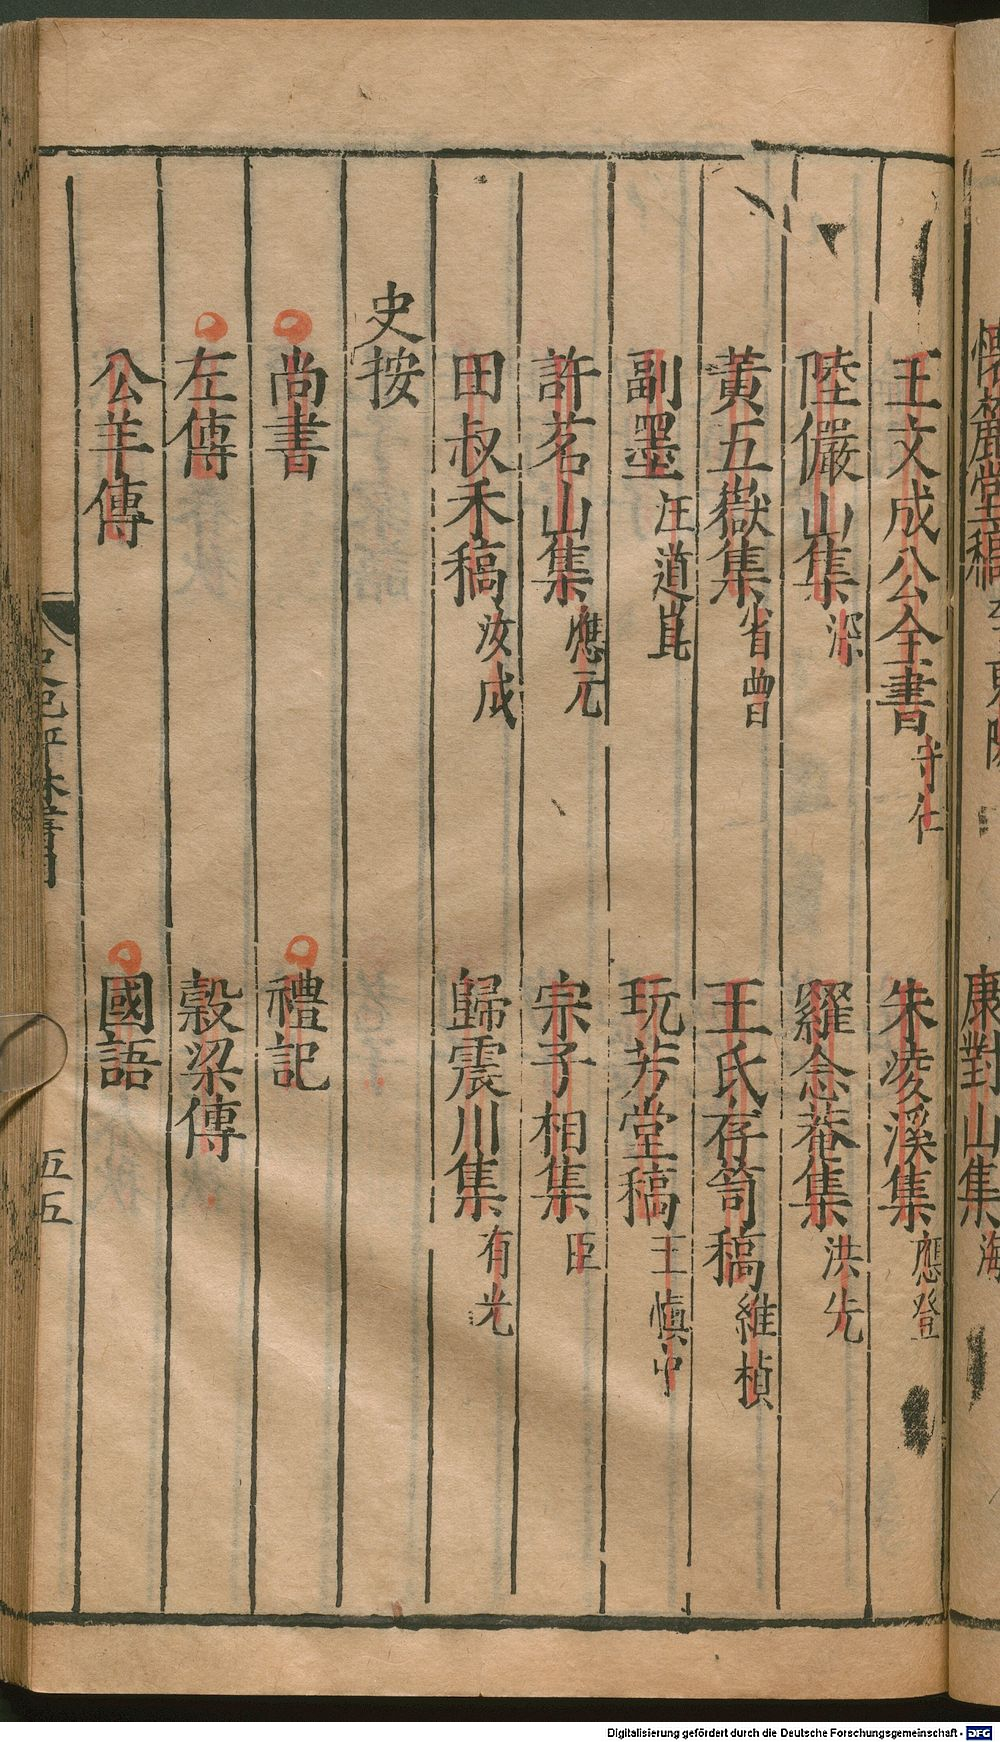 懷麓堂稿 李東陽
康對山集 海
王文成公全書 守仁
朱凌溪集 應登
陸儼山集 深
羅念菴集 洪先
黃五嶽集 省曾
王氏存笥稿 維楨
副墨 汪道崑
玩芳堂稿 王慎中
許茗山集 應元
宗子相集 臣
田叔禾稿 汝成
歸震川集 有光
史按
尚書
禮記
左傳
穀梁傳
公羊傳
國語
五五
Digitalisierung gefördert durch die Deutsche Forschungsgemeinschaft - DFG